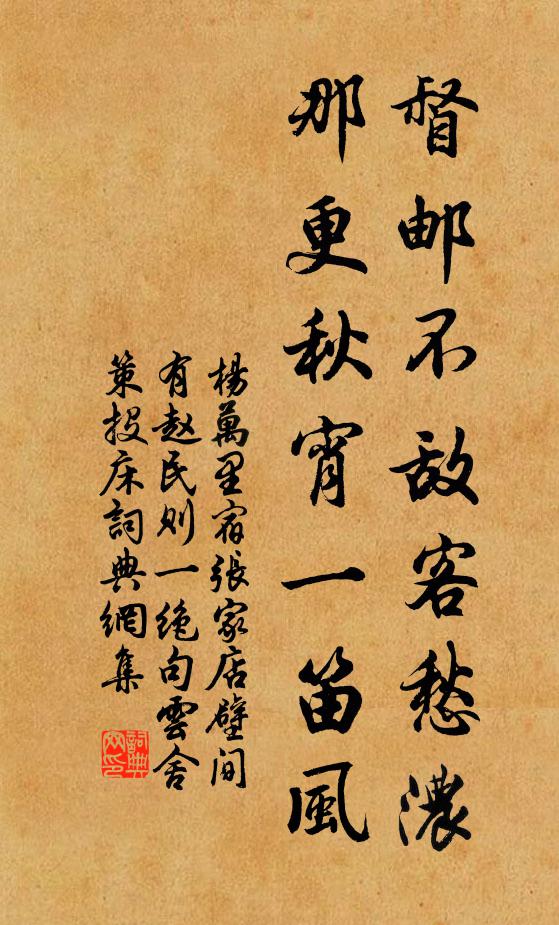 督邮不敌客愁濃
那更秋宵一笛風
楊萬里宿張家店壁间
有赵民则一绝句雲舍
策投床詞典網集
詞典網印